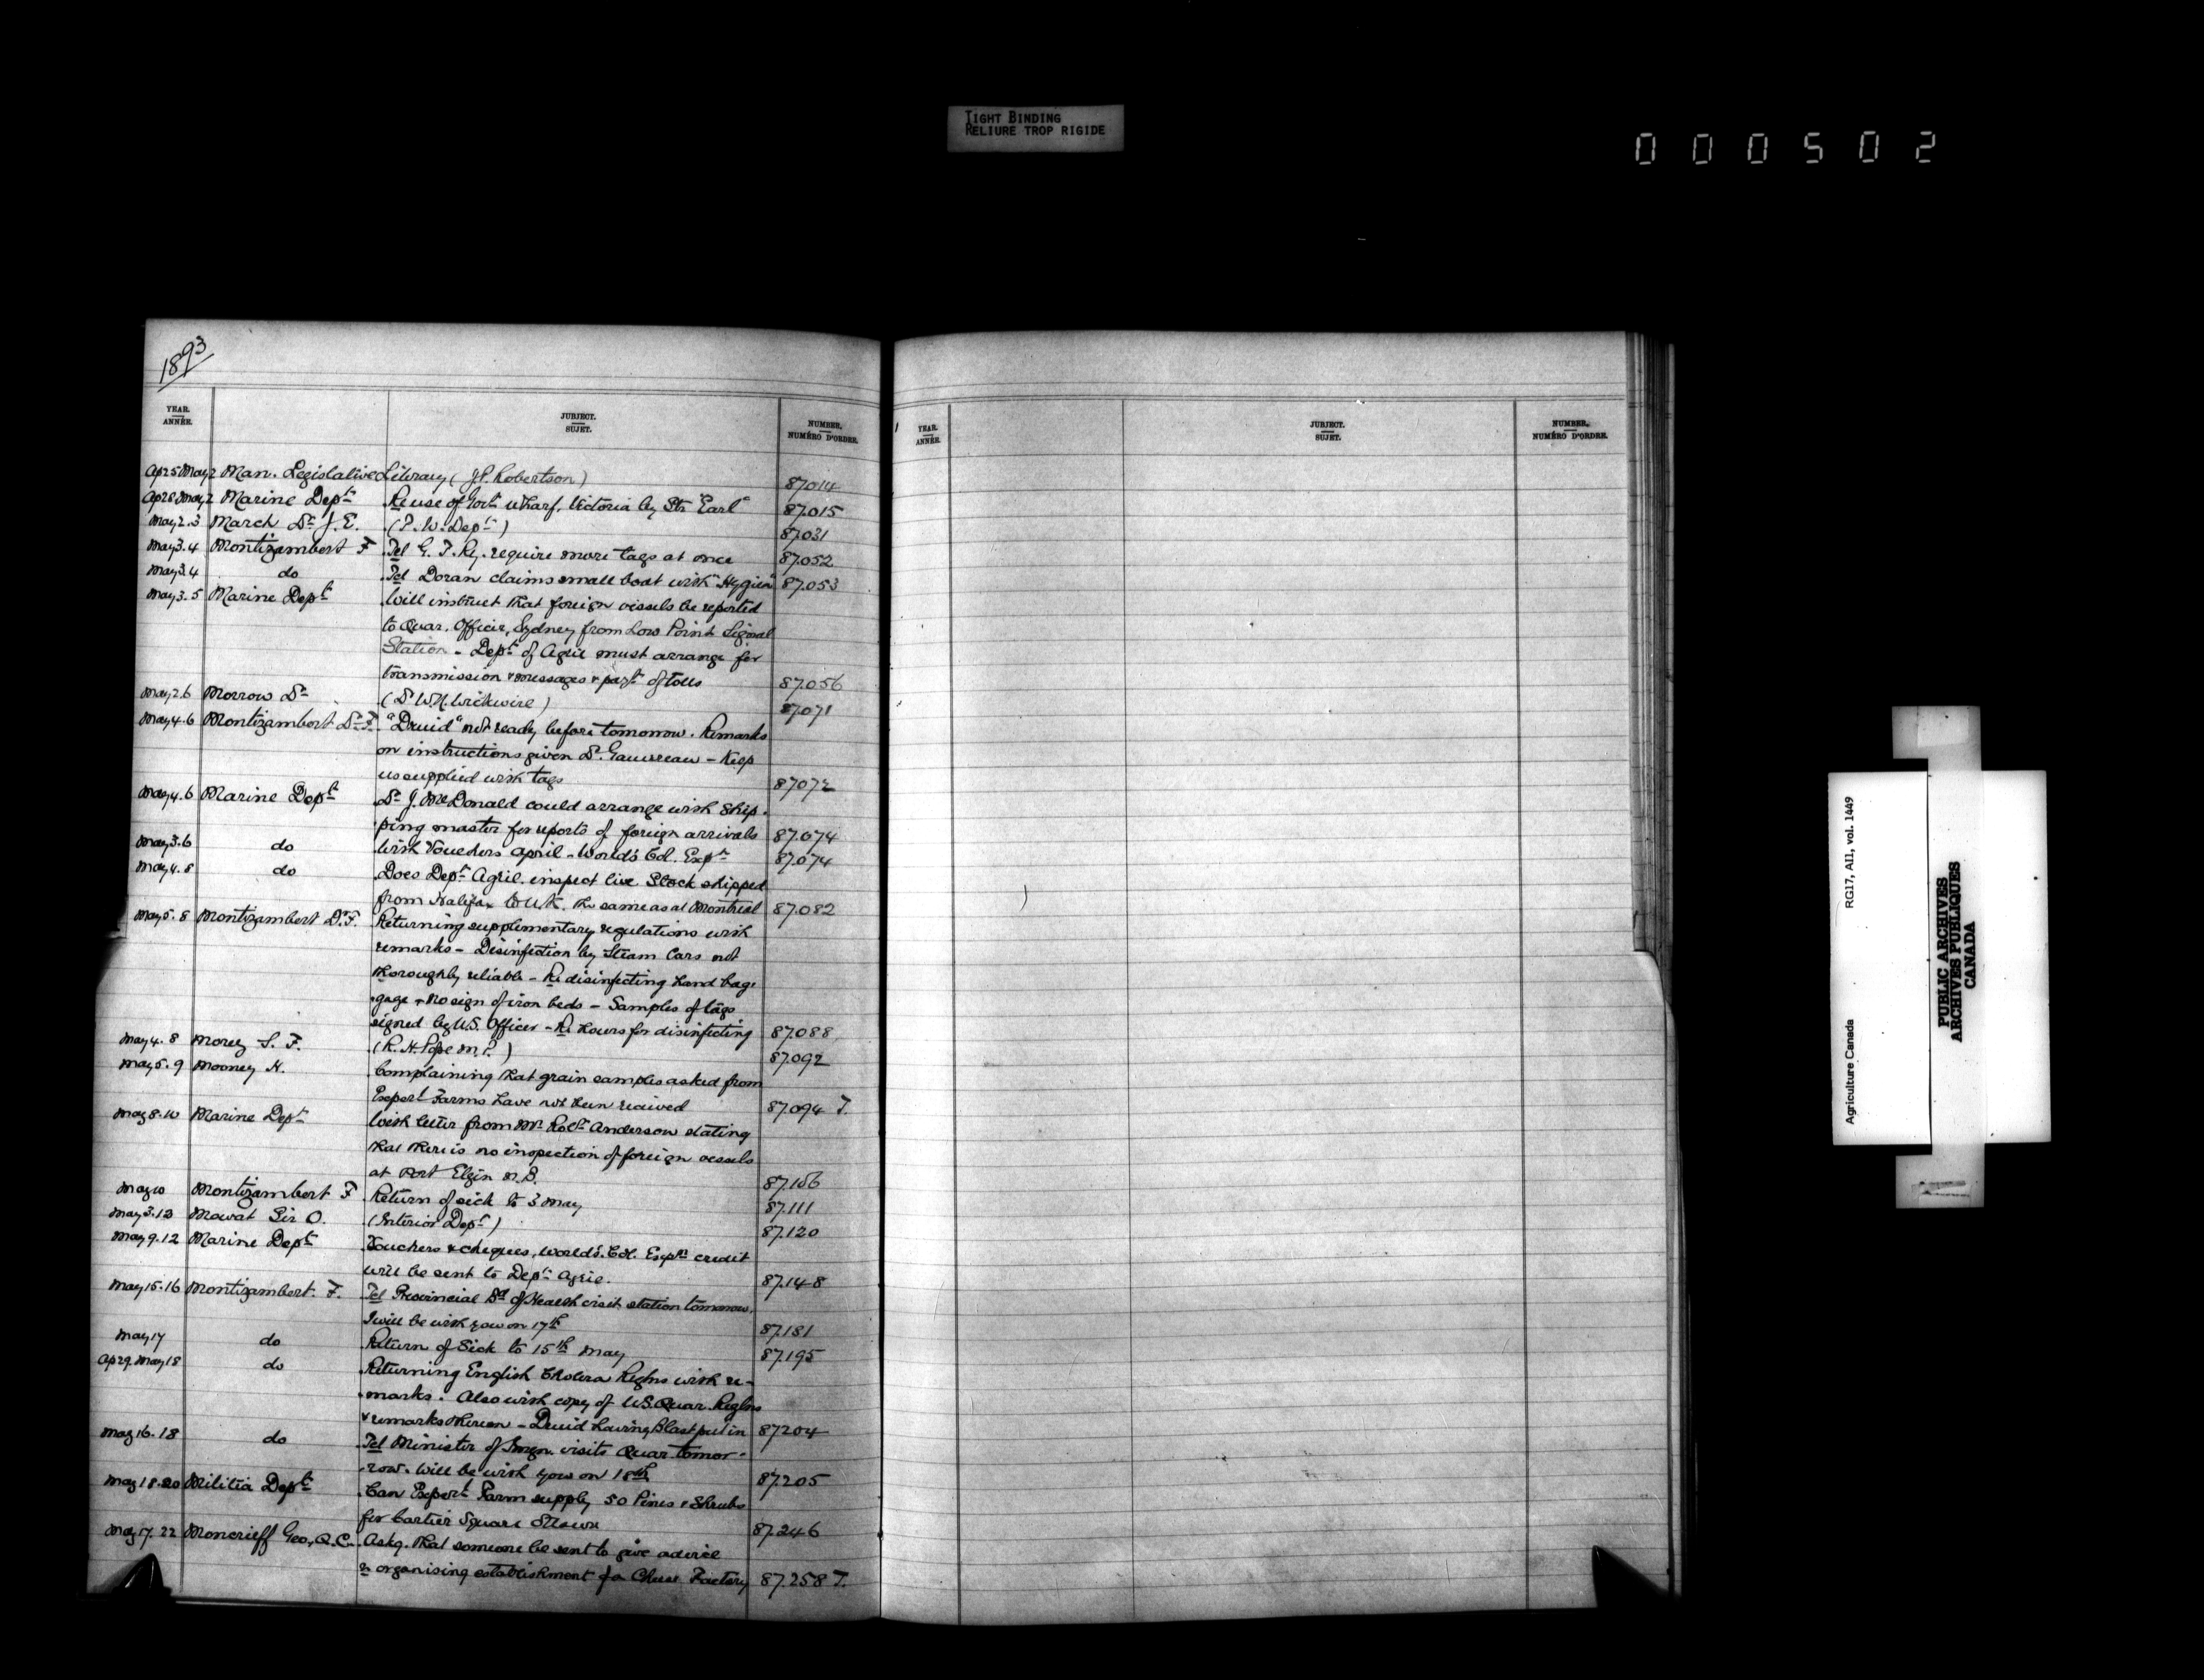 TIGHT BINDING
RELIURE TROP RIGIDE
000502
1893
YEAR. ANNÉE. JUBJECT. SUJET. NUMBER. NUMÉRO D'ORDRE.
Ap 25 May 2 Man. Legislative Library (J.P. Robertson) 87014
Ap 28 May 2 Marine Dept Re use of Govt wharf, Victoria by Str "Earl" 87.015
May 2.3 March Dr J. E. (P. W. Dept) 87.031
May 3.4 Montizambert F Tel G. T. Ry. require more tags at once 87.052
May 3.4 do Tel Doran claims small boat with "Hygiea" 87.053
May 3.5 Marine Dept Will instruct that foreign vessels be reported
to Quar. Officer, Sydney from Low Point Signal
Station - Dept of Agric must arrange for
transmission & messages & payt of tolls 87.056
May 2.6 Morrow Dr (Dr W. N. Wickwire) 87.071
May 4.6 Montizambert Dr F. "Druid" not ready before tomorrow. Remarks
on instructions given Dr. Gauvreau - Keep
us supplied with tags 87072
May 4.6 Marine Dept Dr J. McDonald could arrange with Ship-
ping master for reports of foreign arrivals 87.074
May 3.6 do With Vouchers April - World's Col. Expn 87.074
May 4.8 do Does Dept Agril. inspect live Stock shipped
from Halifax to U.K. the same as at Montreal 87.082
May 5.8 Montizambert Dr F. Returning supplementary regulations with
remarks - Disinfection by Steam Cars not
thoroughly reliable - Re disinfecting hand bag-
gage & no sign of iron beds - Samples of tags
signed by U.S. Officer - Re hours for disinfecting 87.088
May 4.8 Morey S. F. (R. H. Pope M.P.) 87.092
May 5.9 Mooney H. Complaining that grain samples asked from
Expert Farms have not been received 87.094 T.
May 8.10 Marine Dept With letter from Mr Robt Anderson stating
that there is no inspection of foreign vessels
at Port Elgin N.B. 87.106
May 10 Montizambert F Return of sick to 3 May 87.111
May 3.12 Mowat Sir O. (Interior Dept) 87.120
May 9.12 Marine Dept Vouchers & cheques, World's. Col. Expn credit
will be sent to Dept Agric. 87.148
May 15.16 Montizambert. F. Tel Provincial Bd of Health visit station tomorrow.
I will be with you on 17th 87.181
May 17 do Return of Sick to 15th May 87.195
Ap 29. May 18 do Returning English Cholera Reglns with re-
marks. Also with copy of U.S. Quar. Reglns
& remarks thereon - Druid having Blast put in 87204
May 16.18 do Tel Minister of Immgn. visits Quar. tomor-
row. Will be with you on 18th 87.205
May 18.20 Militia Dept Can Expert Farm supply 50 Pines & Shrubs
for Cartier Square Ottawa 87.246
May 17.22 Moncrieff Geo, Q.C. Askg. that someone be sent to give advice
re organising establishment of a Cheese Factory 87.258 T.
YEAR. ANNÉE. JUBJECT. SUJET. NUMBER. NUMÉRO D'ORDRE.
Agriculture Canada RG17, AI1, vol. 1449
PUBLIC ARCHIVES
ARCHIVES PUBLIQUES
CANADA